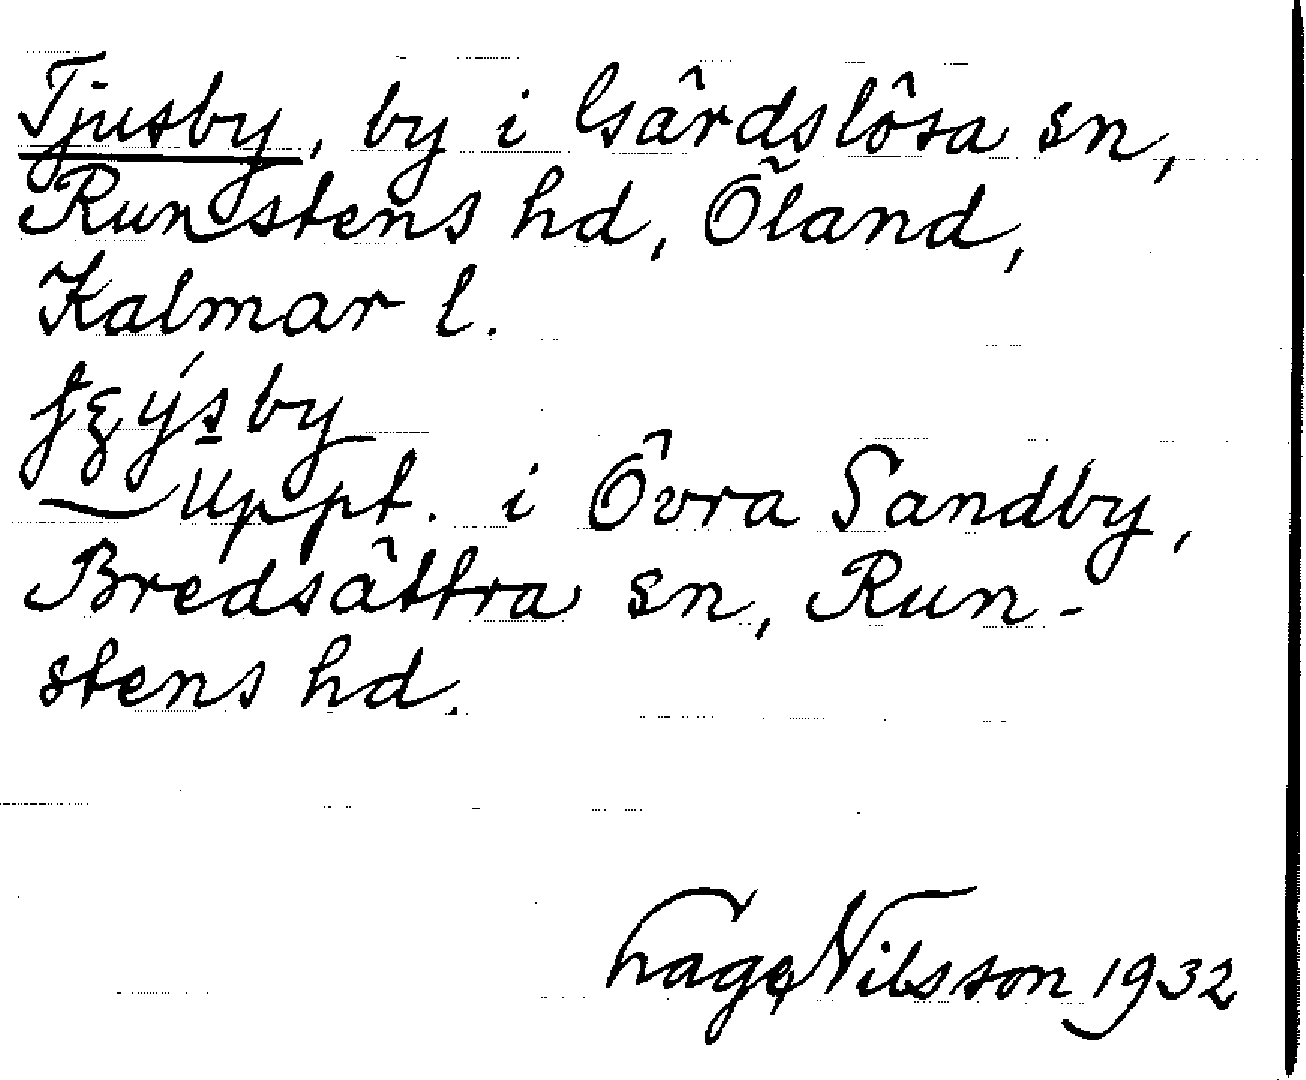 Tjusby, by i Gärdslösa sn,
Runstens hd, Öland,
Kalmar l.
Uppt. i Övra Sandby,
Bredsättra sn, Run-
stens hd.
Nilsson 1932